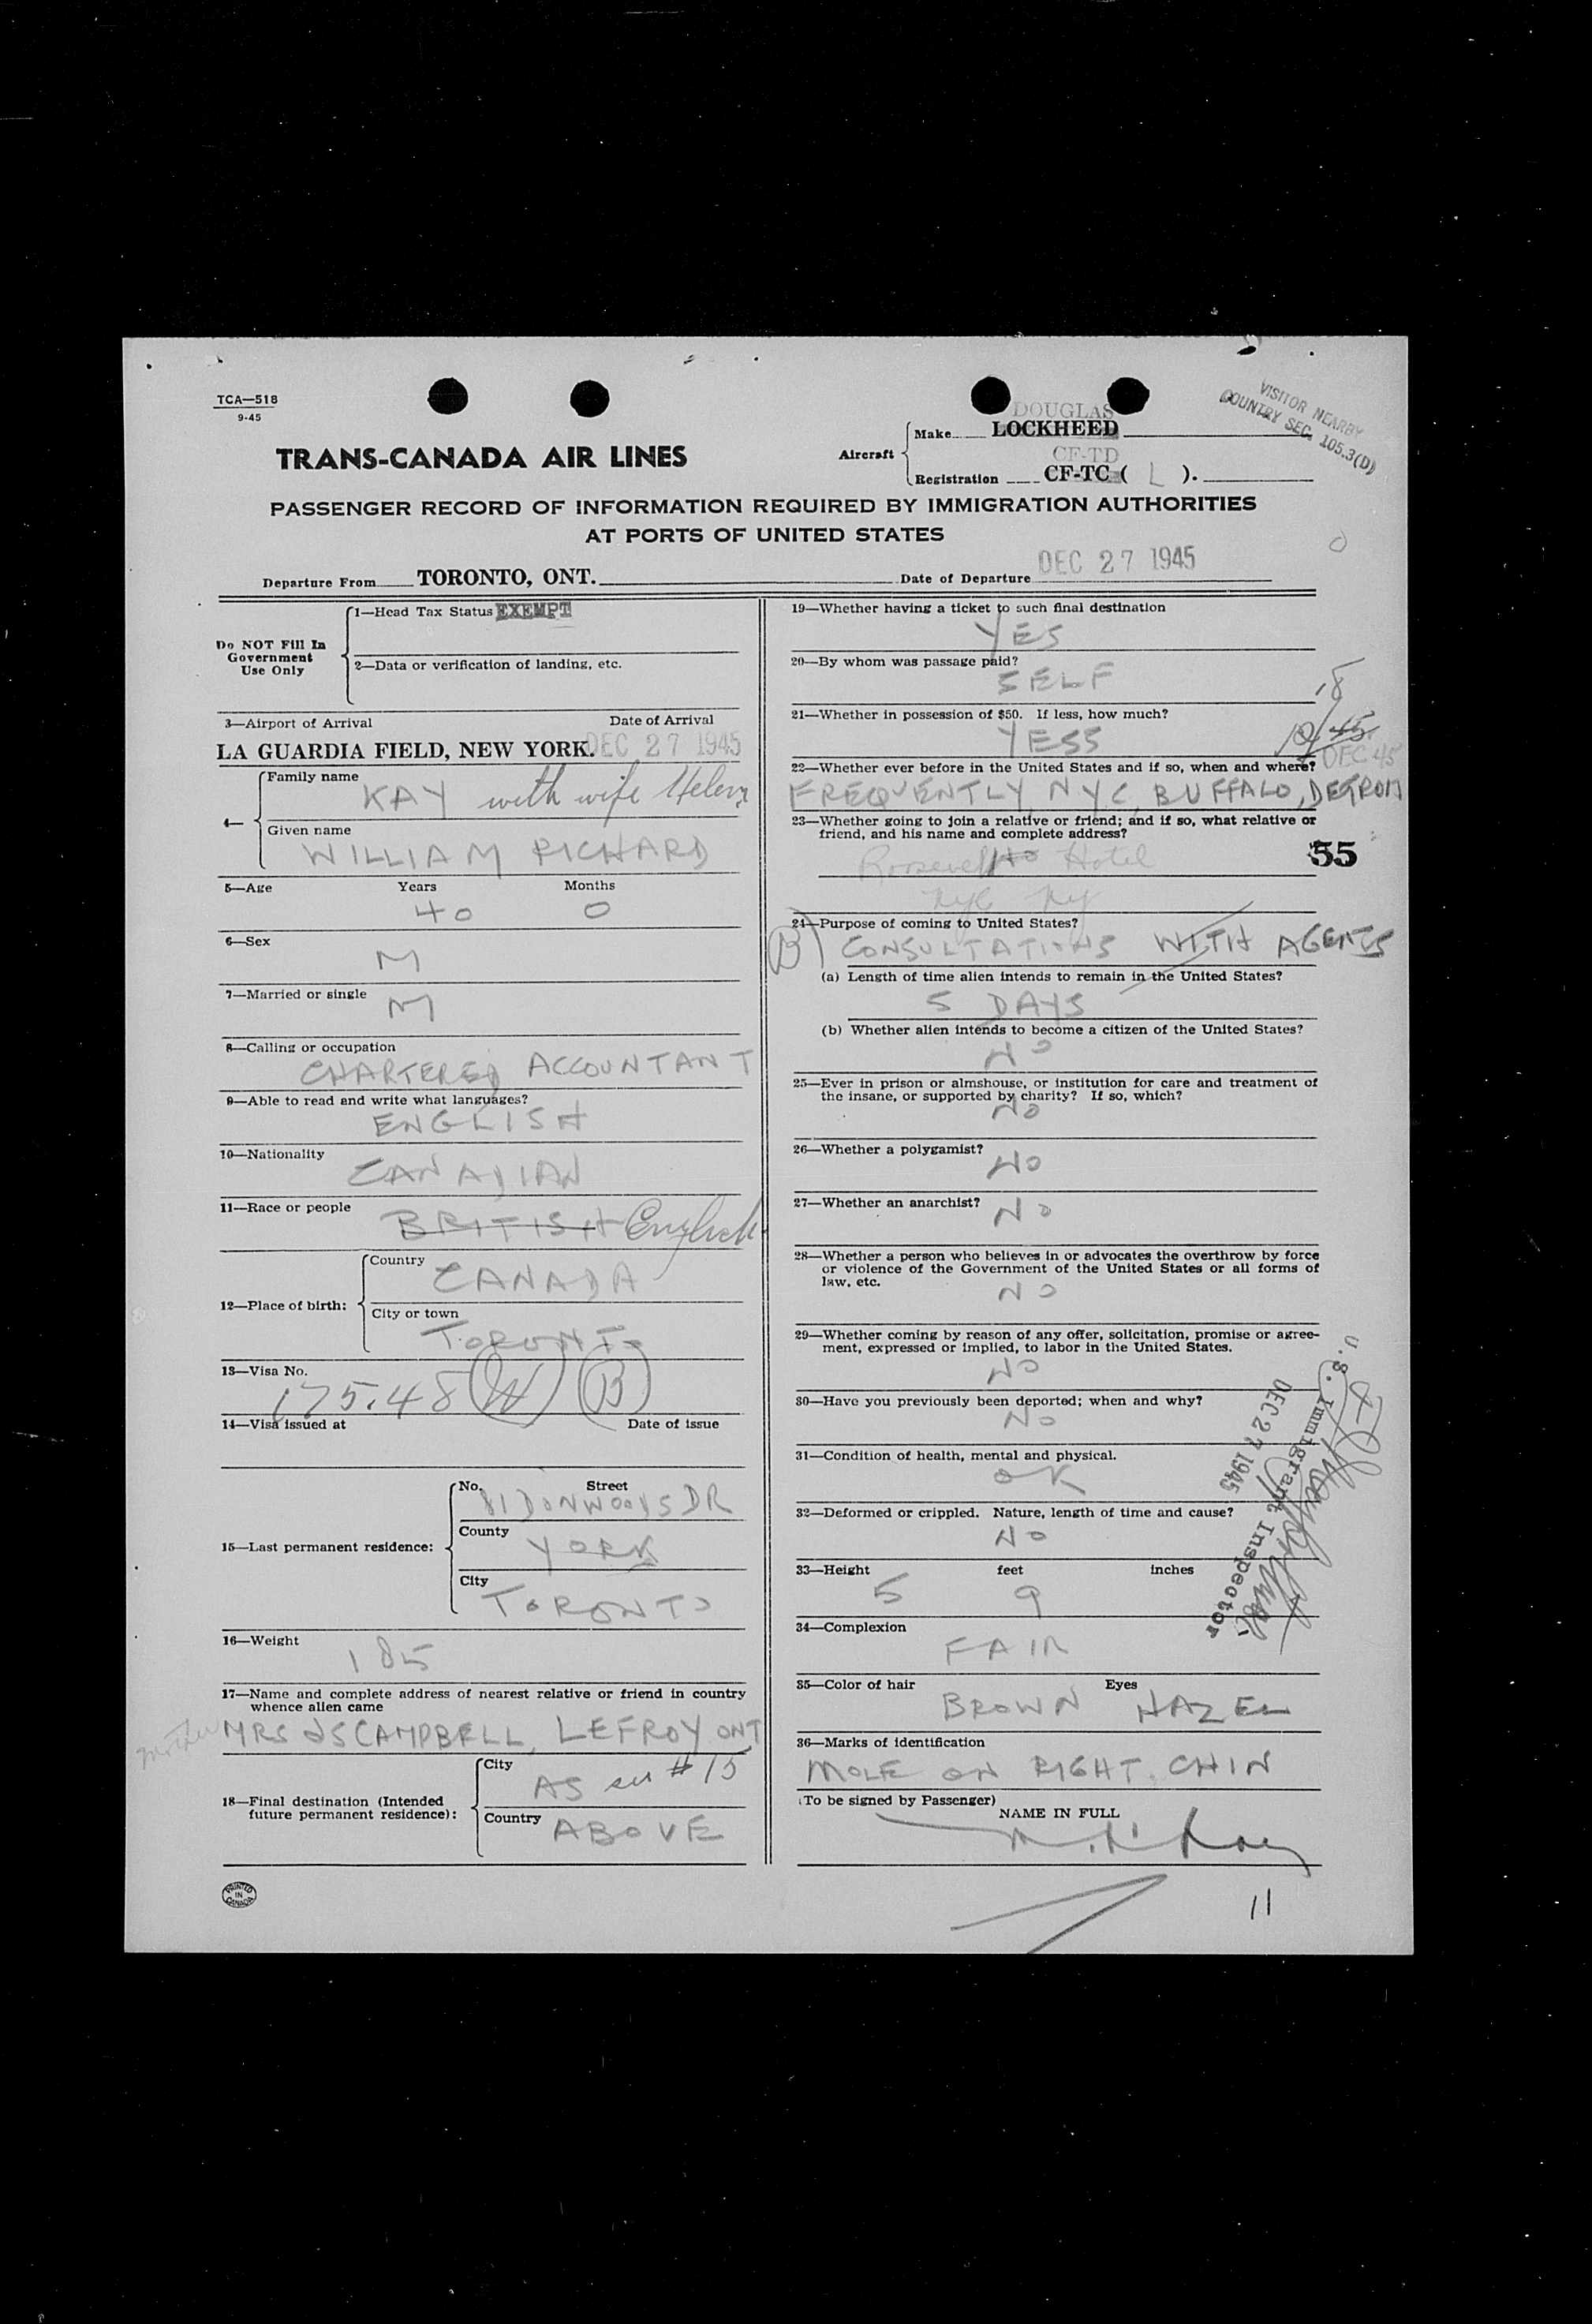 TCA—518
9-45
TRANS-CANADA AIR LINES
Aircraft
DOUGLAS
Make LOCKHEED
CF-TD
Registration CF-TC ( L ).
VISITOR NEARBY
COUNTRY SEC. 105.3(D)
PASSENGER RECORD OF INFORMATION REQUIRED BY IMMIGRATION AUTHORITIES
AT PORTS OF UNITED STATES
Departure From TORONTO, ONT.
Date of Departure DEC 27 1945
Do NOT Fill In
Government
Use Only
1—Head Tax Status EXEMPT
2—Data or verification of landing, etc.
3—Airport of Arrival Date of Arrival
LA GUARDIA FIELD, NEW YORK. DEC 27 1945
4—
Family name
KAY with wife Helen
Given name
WILLIAM RICHARD
5—Age Years Months
40 0
6—Sex
M
7—Married or single
M
8—Calling or occupation
CHARTERED ACCOUNTANT
9—Able to read and write what languages?
ENGLISH
10—Nationality
CANADIAN
11—Race or people
BRITISH English
12—Place of birth:
Country
CANADA
City or town
TORONTO
13—Visa No.
175.48 (W) (B)
14—Visa issued at Date of issue
15—Last permanent residence:
No. Street
81 DONWOODS DR
County
YORK
City
TORONTO
16—Weight
185
17—Name and complete address of nearest relative or friend in country
whence alien came
mother MRS JS CAMPBELL, LEFROY ONT
18—Final destination (Intended
future permanent residence):
City
AS #15
Country
ABOVE
PRINTED
IN
CANADA
19—Whether having a ticket to such final destination
YES
20—By whom was passage paid?
SELF
21—Whether in possession of $50. If less, how much?
YESS
22—Whether ever before in the United States and if so, when and where?
DEC 45
FREQUENTLY, NYC, BUFFALO, DETROIT
23—Whether going to join a relative or friend; and if so, what relative or
friend, and his name and complete address?
Roosevelt Hotel
NYC NY
55
24—Purpose of coming to United States?
(B) CONSULTATIONS WITH AGENTS
(a) Length of time alien intends to remain in the United States?
5 DAYS
(b) Whether alien intends to become a citizen of the United States?
NO
25—Ever in prison or almshouse, or institution for care and treatment of
the insane, or supported by charity? If so, which?
NO
26—Whether a polygamist?
NO
27—Whether an anarchist?
NO
28—Whether a person who believes in or advocates the overthrow by force
or violence of the Government of the United States or all forms of
law, etc.
NO
29—Whether coming by reason of any offer, solicitation, promise or agree-
ment, expressed or implied, to labor in the United States.
NO
30—Have you previously been deported; when and why?
NO
31—Condition of health, mental and physical.
OK
32—Deformed or crippled. Nature, length of time and cause?
NO
33—Height feet inches
5 9
U. S. Immigrant Inspector
DEC 27 1945
34—Complexion
FAIR
35—Color of hair Eyes
BROWN HAZEL
36—Marks of identification
MOLE ON RIGHT CHIN
(To be signed by Passenger)
NAME IN FULL
11